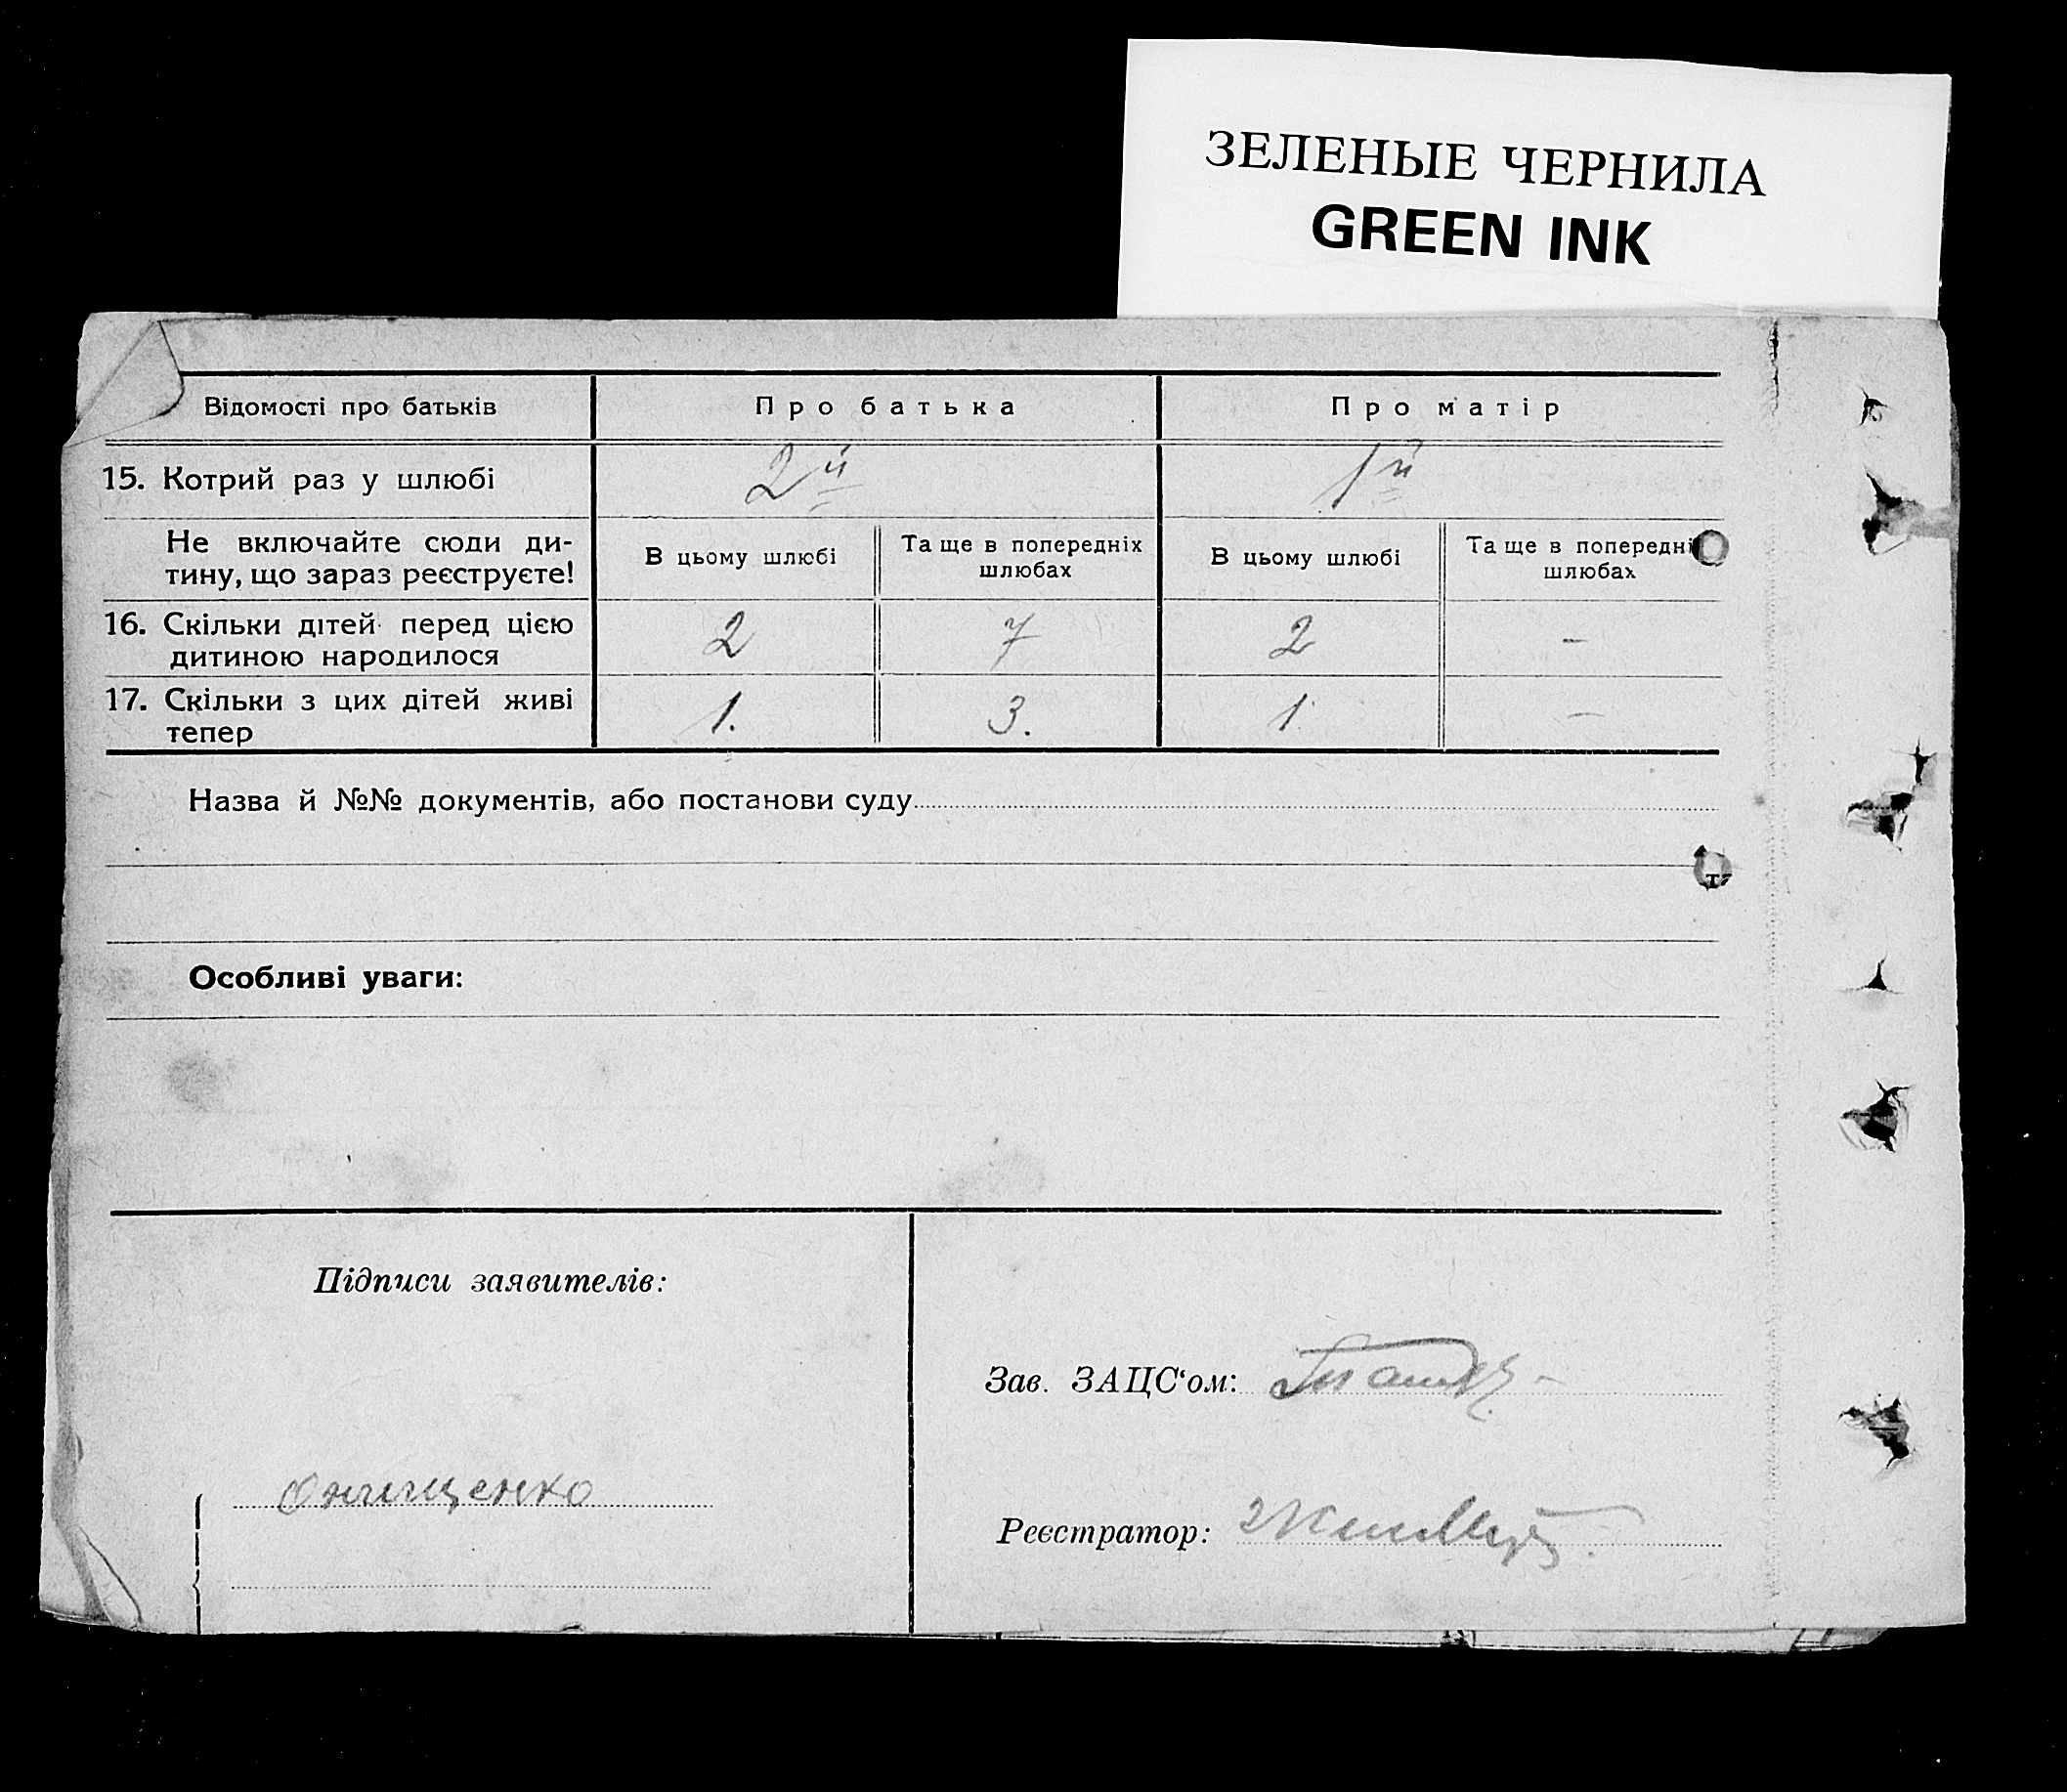 ЗЕЛЕНЫЕ ЧЕРНИЛА
GREEN INK
Відомості про батьків
Про батька
Про матір
15. Котрий раз у шлюбі
2й
1й
Не включайте сюди ди-
тину, що зараз реєструєте!
В цьому шлюбі
Та ще в попередніх
шлюбах
В цьому шлюбі
Та ще в попередні
шлюбах
16. Скільки дітей перед цією
дитиною народилося
2
7
2
–
17. Скільки з цих дітей живі
тепер
1.
3.
1
–
Назва й №№ документів, або постанови суду
Особливі уваги:
Підписи заявителів:
Зав. ЗАЦС‘ом:
Онищенко
Реєстратор: